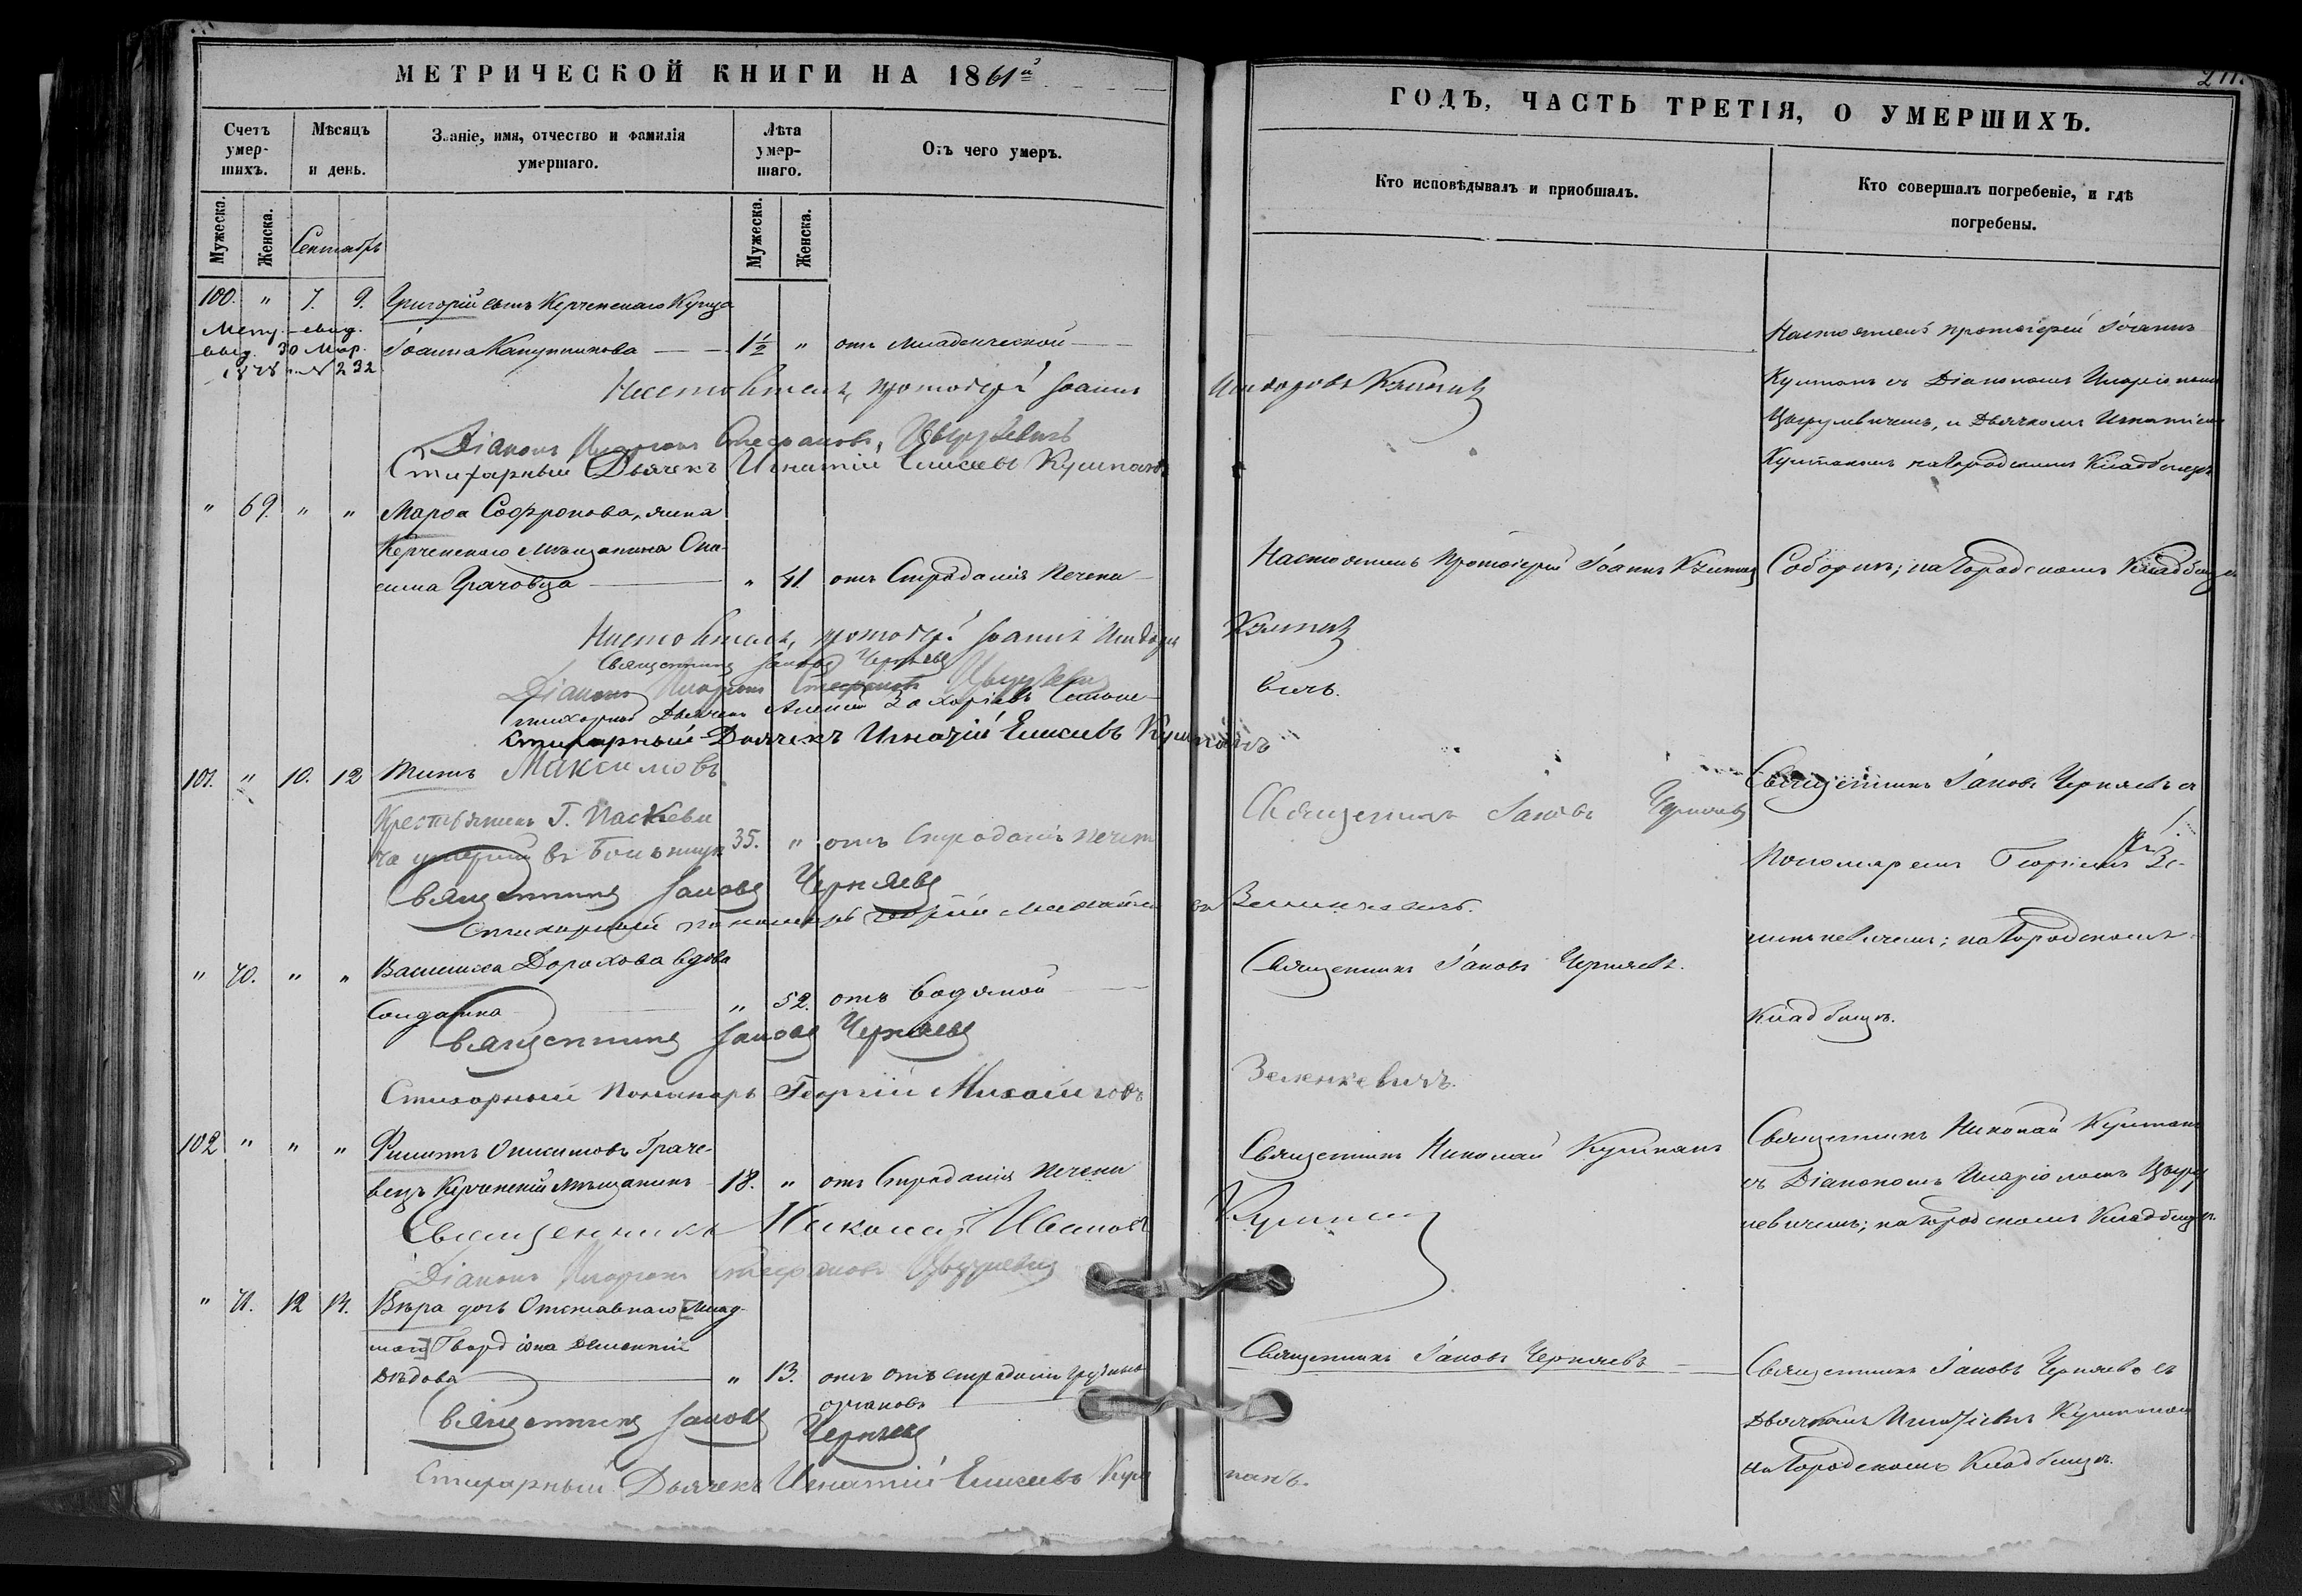 МЕТРИЧЕСКОЙ КНИГИ НА 1861й
Счетъ умер-шихъ.
Мѣсяцъ и день.
Званіе, имя, отчество и фамилія умершаго.
Лѣта умер-шаго.
Отъ чего умеръ.
Мужеска.
Женска.
Сентябрь
Мужеска.
Женска.
100. " 7. 9. Григорій сынъ Керченскаго Купца
Іоанна Капушникова 1½ " отъ младенческой
30 Мар.
№ 232
Настоятель, протоіерей Іоаннъ
Діаконъ Иларіонъ Стефановъ Цвѣрулевичъ
Стихарный Дьячекъ Игнатій Елисеевъ Кушпанъ
" 69. " " Марѳа Софронова, жена
Керченскаго мѣщанина Они-
сима Грачовца " 41. отъ Страданія печени
Настоятель, протоіерей Іоаннъ
Священникъ Іаковъ Черняевъ
Діаконъ Иларіонъ Стефановъ
стихарный Дьячекъ Алексій Захаріевъ
Стихарный Дьячекъ Игнатій Елисеевъ Кушпанъ
101. " 10. 12 Титъ Максимовъ
Крестьянинъ Г. Паскеви
ча умерш. въ больницѣ 35. " отъ Страданія печени
Священникъ Іаковъ Черняевъ
Стихарный пономарь Георгій
" 70. " " Василиса Дорохова вдова
Солдатка " 52. отъ водяной
Священникъ Іаковъ Черняевъ
Стихарный Пономарь Георгій Михайловъ
102 " " " Филиппъ Онисимовъ Граче-
вецъ Керченскій мѣщанинъ 18. " отъ Страданія печени
Священникъ Николай Ивановъ
Діаконъ Иларіонъ Стефановъ
" 71. 12 14. Вѣра дочь Отставнаго Млад-
шаго Гвардіона Дементія
Дѣдова " 13. отъ отъ страданія грудныхъ
органовъ
Священникъ Іаковъ Черняевъ
Стихарный Дьячекъ Игнатій Елисеевъ Куш
ГОДЪ, ЧАСТЬ ТРЕТІЯ, О УМЕРШИХЪ.
Кто исповѣдывалъ и пріобщалъ.
Кто совершалъ погребеніе, и гдѣ погребены.
Настоятель протоіерей Іоаннъ
съ Діакономъ Иларіономъ
и Дьячкомъ Игнатіемъ
Кушпаномъ на Городскомъ Кладбищѣ
Настоятель протоіерей Іоаннъ
Соборнѣ; на Городскомъ Кладбищѣ
вичъ.
Священникъ Іаковъ Черняевъ
Священникъ Іаковъ Черняевъ съ
Пономаремъ Георгіемъ Зе-
линкевичемъ; на Городскомъ
Кладбищѣ.
Священникъ Іаковъ Черняевъ.
Зеленкевичъ.
Священникъ Николай Кушпанъ
Священникъ Николай Кушпанъ
съ Діакономъ Иларіономъ Цвѣру
левичемъ; на Городскомъ Кладбищѣ.
Кушпанъ
Священникъ Іаковъ Черняевъ
Священникъ Іаковъ Черняевъ съ
Дьячкомъ Игнатіемъ Кушпаномъ
на Городскомъ Кладбищѣ.
панъ.